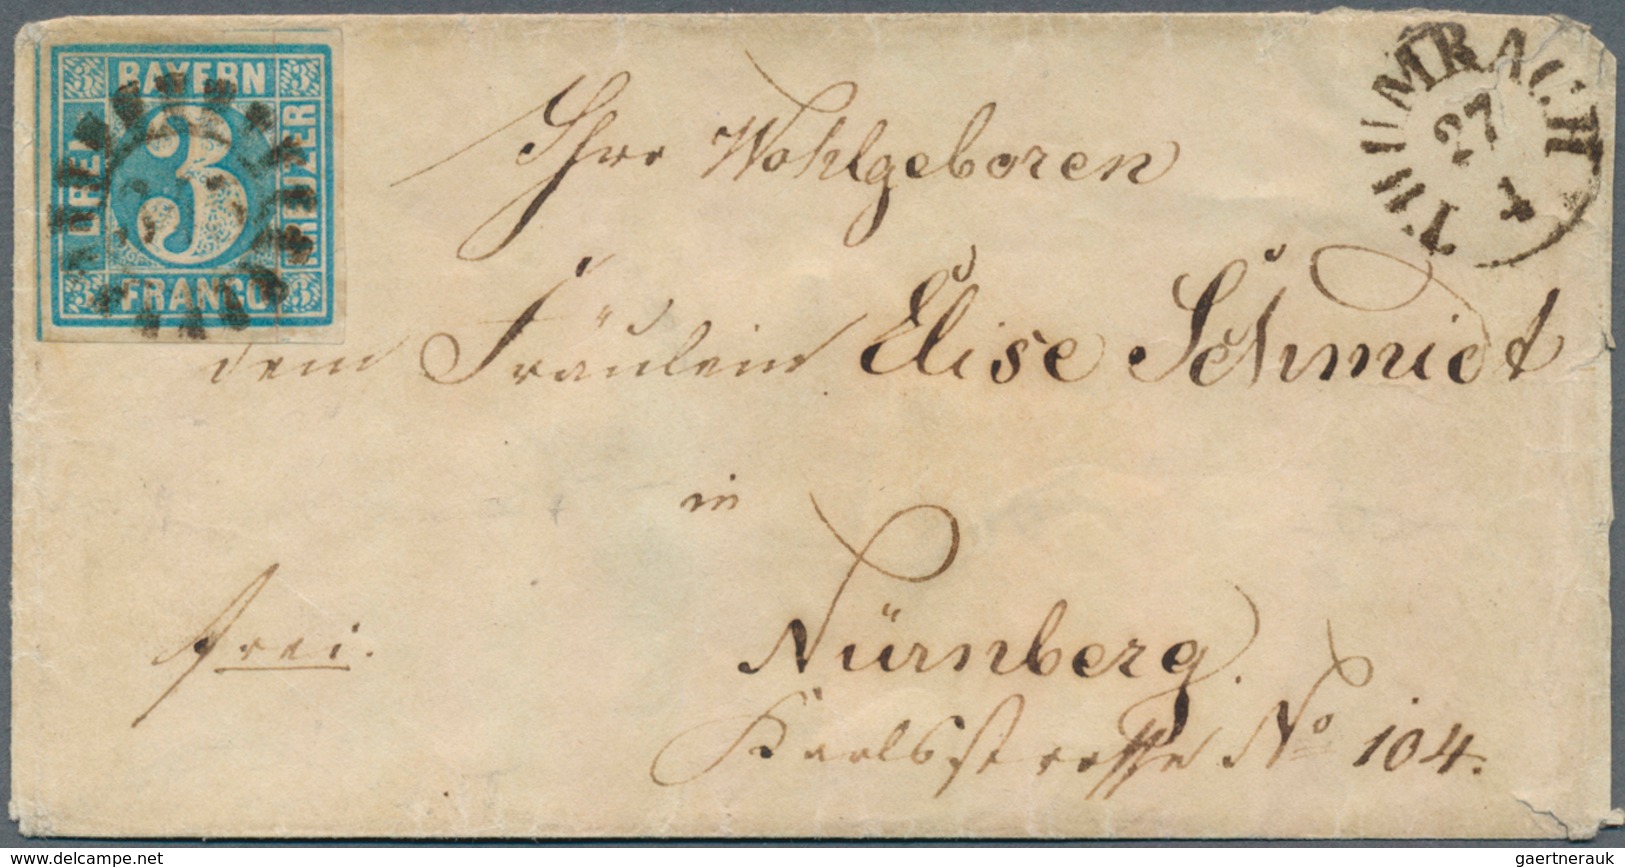 BAYERN
DREI
3
KREUZER
FRANCO
THURNBACH
27
1
Ihro Wohlgeboren
dem Fräulein Elise Schmidt
in
Nürnberg.
frei.
Karlsstrasse No 104.
www.delcampe.net
gaertnerauk